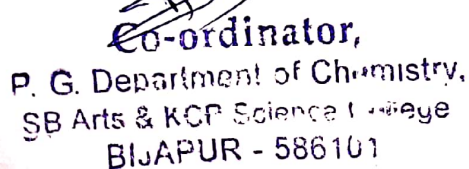 Co-ordinator,
P. G. Department of Chemistry,
SB Arts & KCP Science College
BIJAPUR - 586101